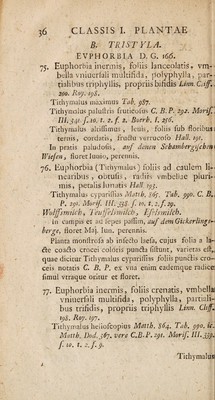 36 CLASSIS I. PLANTAE
B. TRISTYLA.
EVPHORBIA D. G. 166.
75. Euphorbia inermis, foliis lanceolatis, vm-
bella vniuersali multifida, polyphylla, par-
tialibus triphyllis, propriis bifidis Linn. Cliff.
200. Roy. 196.
Tithymalus maximus Tab. 987.
Tithymalus palustris fruticosus C. B. P. 292. Moris.
III. 340. s. 10. t. 2. f. 2. Barrh. I. 256.
Tithymalus altissimus, lenis, foliis sub floribus
ternis, cordatis, fructu verrucoso Hall. 191.
In pratis paludosis, auf denen Schambergischen
Wiesen, floret Iunio, perennis.
76. Euphorbia (Tithymalus) foliis ad caulem li-
nearibus, obtusis, radiis vmbellae pluri-
mis, petalis lunatis Hall. 191.
Tithymalus cyparissias Matth. 865. Tab. 990. C. B.
P. 291. Moris. III. 338. s. 10. t. 2. f. 29.
Wolffsmilch, Teuffelsmilch, Eselsmilch.
In campis et ad sepes passim, auf dem Gickerlings-
berge, floret Maj. Iun. perennis.
Planta monstrosa ab insecto laesa, cujus folia a la-
cte coacto crocei coloris puncta sistunt, varietas est,
quae dicitur Tithymalus cyparissias foliis punctis cro-
ceis notatis C. B. P. ex vna enim eademque radice
simul vtraque oritur et floret.
77. Euphorbia inermis, foliis crenatis, vmbella
vniuersali multifida, polyphylla, partiali-
bus trifidis, propriis triphyllis Linn. Cliff.
198. Roy. 197.
Tithymalus helioscopius Matth. 864. Tab. 990. b.
Matth. Bod. 767. vero C. B. P. 291. Moris. III. 339.
s. 10. t. 2. f. 9.
Tithymalus